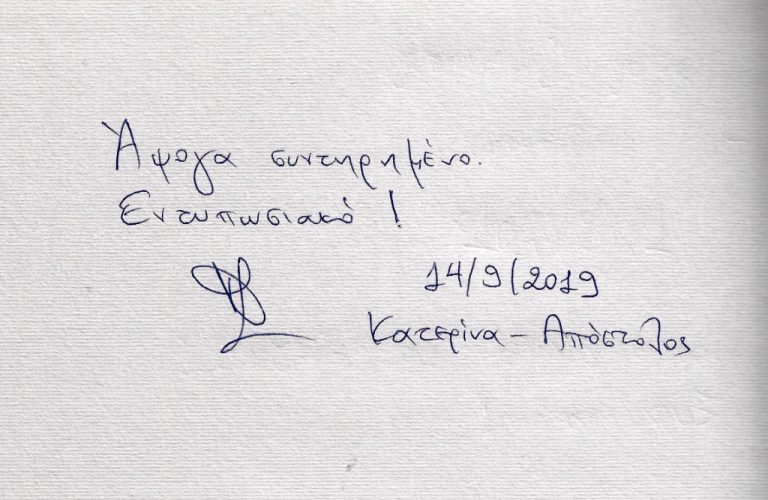 Άψογα συντηρημένο.
Εντυπωσιακό!
14/9/2019
Κατερίνα - Απόστολος